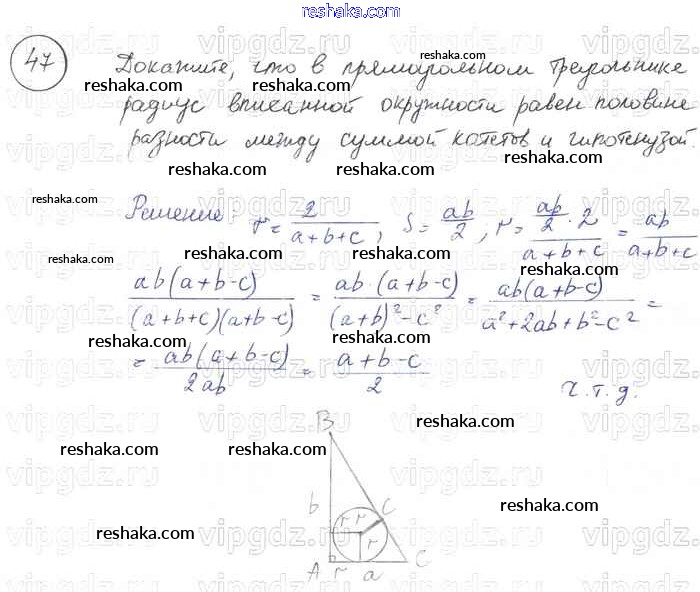 47
Докажите, что в прямоугольном треугольнике
радиус вписанной окружности равен половине
разности между суммой катетов и гипотенузой.
Решение: r = 2/(a+b+c), S = ab/2, r = (ab/2 · 2)/(a+b+c) = ab/(a+b+c)
ab(a+b-c)/((a+b+c)(a+b-c)) = ab·(a+b-c)/((a+b)²-c²) = ab(a+b-c)/(a²+2ab+b²-c²) =
= ab(a+b-c)/(2ab) = (a+b-c)/2
Ч.т.д.
B
b
r r c
r
A r a C
reshaka.com
vipgdz.ru